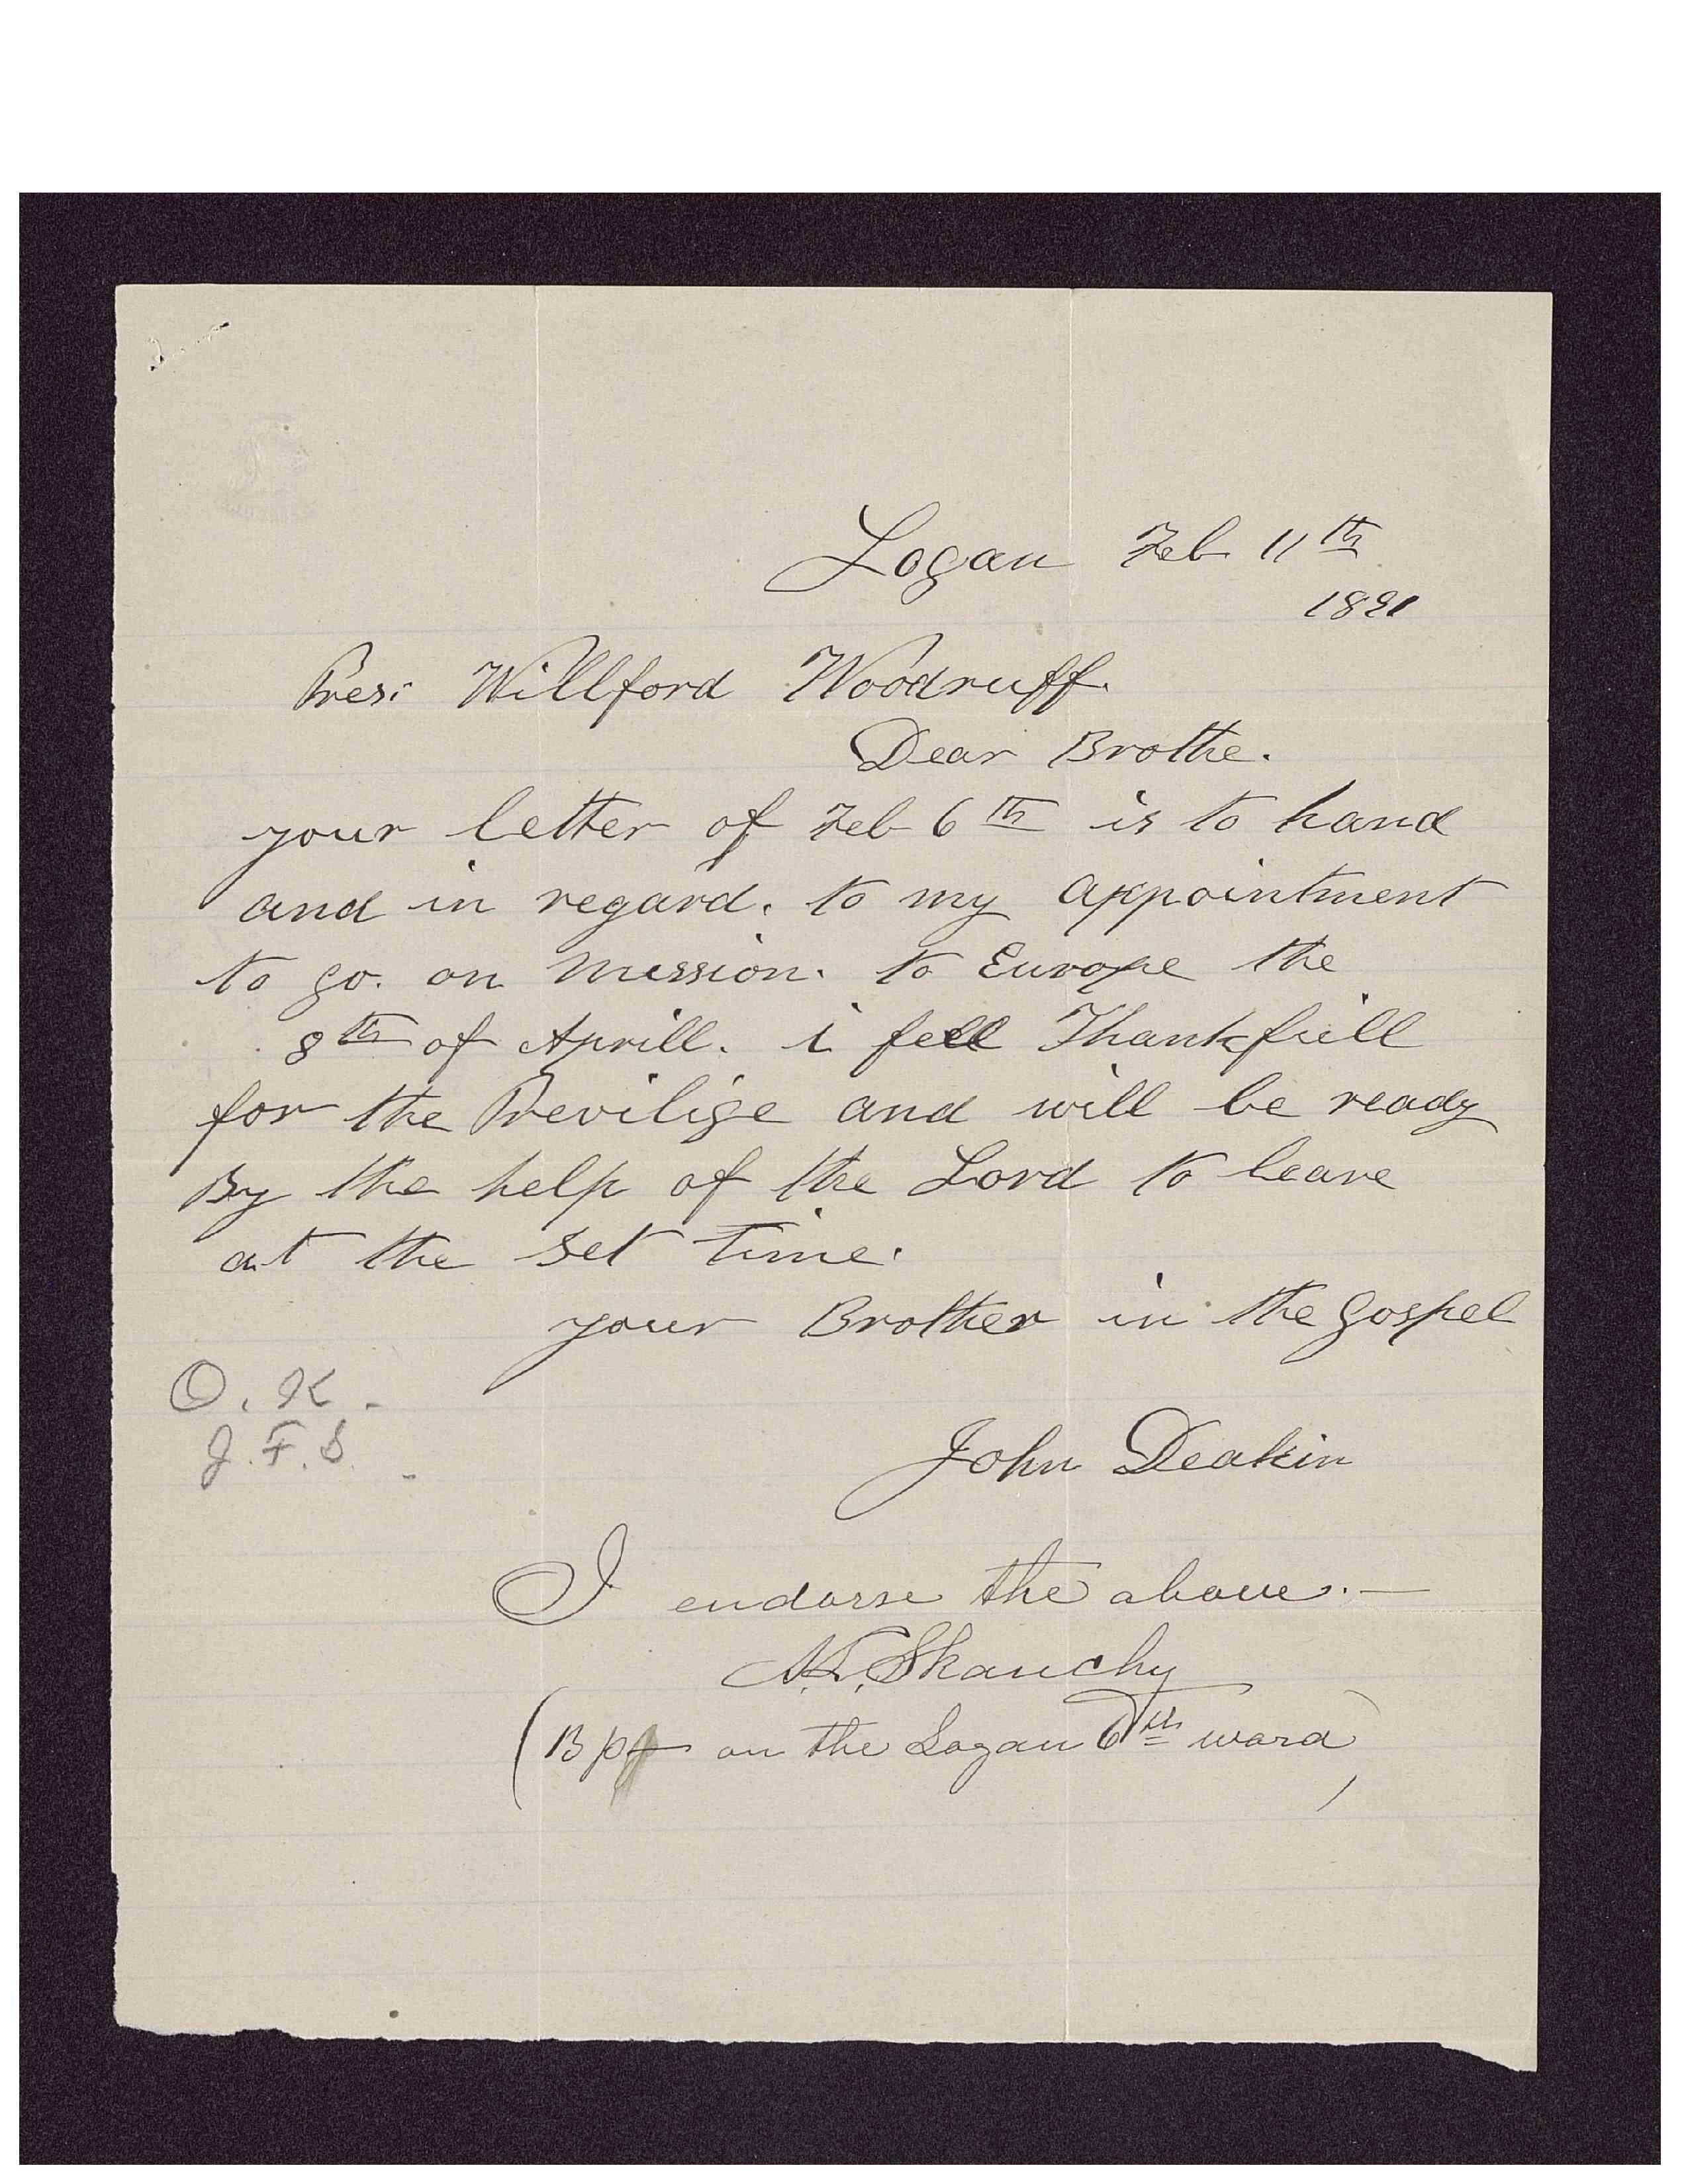 Logan Feb 11th
1891
Pres: Willford Woodruff.
Dear Brothe.
your letter of Feb 6th is to hand
and in regard. to my appointment
to go. on mission. to Europe the
8th of Aprill. i feell Thankfull
for the Previlige and will be ready
By the help of the Lord to leave
at the set time.
your Brother in the gospel
O. K.
J. F. S.
John Deakin
I endorse the above.—
Skanchy
( on the Logan 6th ward)